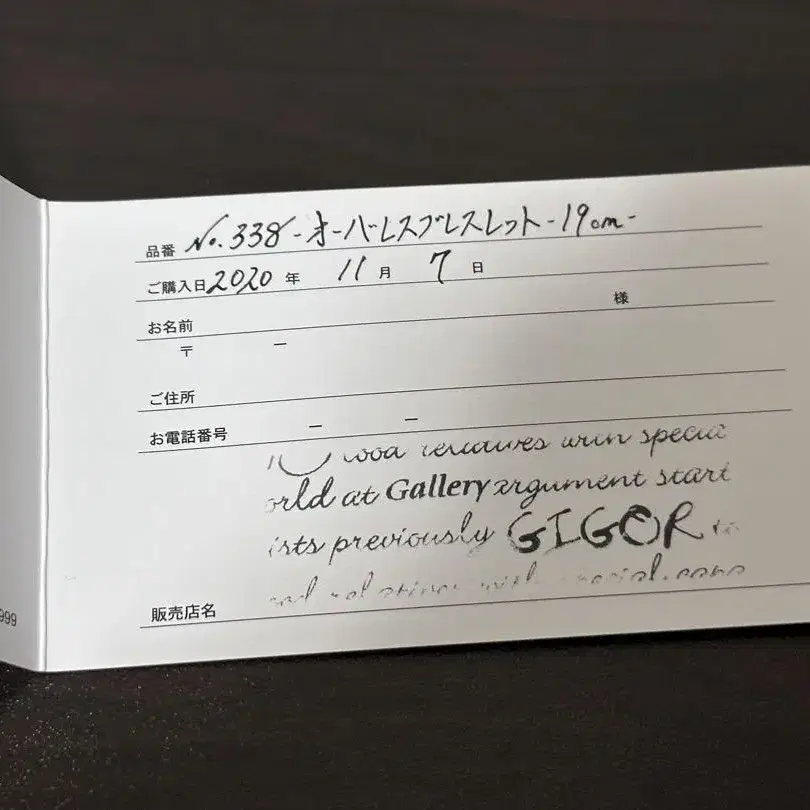 品番 No.338-オーバレスブレスレット-19cm-
ご購入日 2020 年 11 月 7 日
お名前 様
〒 ー
ご住所
お電話番号 ー ー
with specia
at Gallery argument start
ists previously GIGOR to
販売店名
999